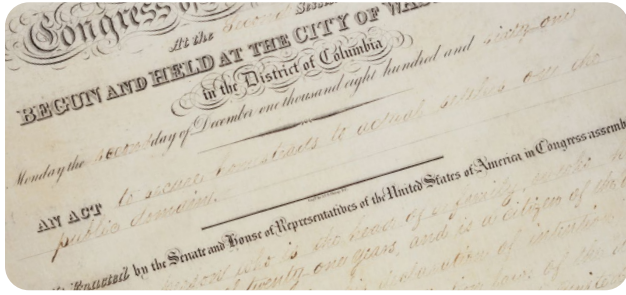 Congress of
At the second Session
BEGUN AND HELD AT THE CITY OF WAS
in the District of Columbia
Monday the second day of December one thousand eight hundred and sixty-one
AN ACT to secure homesteads to actual settlers on the
public domain.
Be it enacted by the Senate and House of Representatives of the United States of America in Congress assemb
person who is the head of a family, or who h
of twenty one years, and is a citizen of the
declaration of intention
laws of the